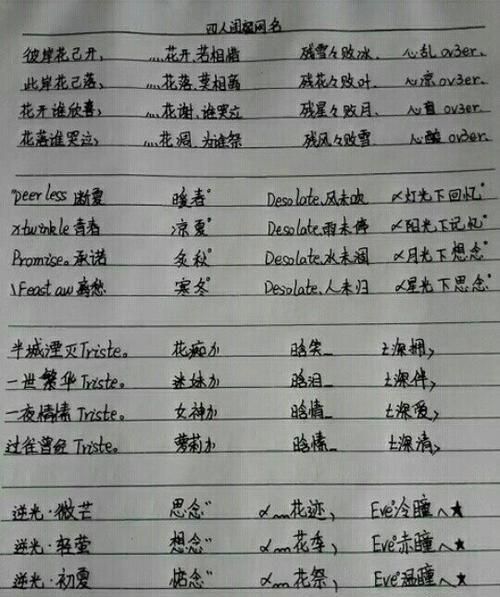 四人闺蜜网名
彼岸花已开, ﹏花开.若相惜 残雪々败冰. 心乱 ov3er.
此岸花已落, ﹏花落.莫相离 残花々败叶. 心凉 ov3er.
花开谁欣喜, ﹏花谢.谁哭泣 残星々败月. 心ov3er.
花落谁哭泣, ﹏花凋.为谁祭 残风々败雪 心酸 ov3er.
"peerless 断夏 暖春° Desolate.风未吹 ∝灯光下回忆"
xtwinkle 青春 凉夏° Desolate.雨未停 ∝阳光下记忆"
Promise。承诺 冬秋° Desolate.水未涸 ∝月光下想念"
\Feast aw 离愁 寒冬° Desolate.人未归 ∝星光下思念"
半城湮灭Triste。 花痴か 晗笑_ ±深拥,
一世繁华Triste。 迷妹か 晗泪_ ±深伴,
一夜情愫Triste。 女神か 晗情_ ±深爱,
过往曾经 Triste。 萝莉か 晗愫_ ±深清,
逆光·微芒 思念" ∝﹏花迹, Eve°冷瞳ヘ★
逆光·轻萤 想念" ∝﹏花季, Eve°赤瞳ヘ★
逆光·初夏 惦念" ∝﹏花祭, Eve°温瞳ヘ★